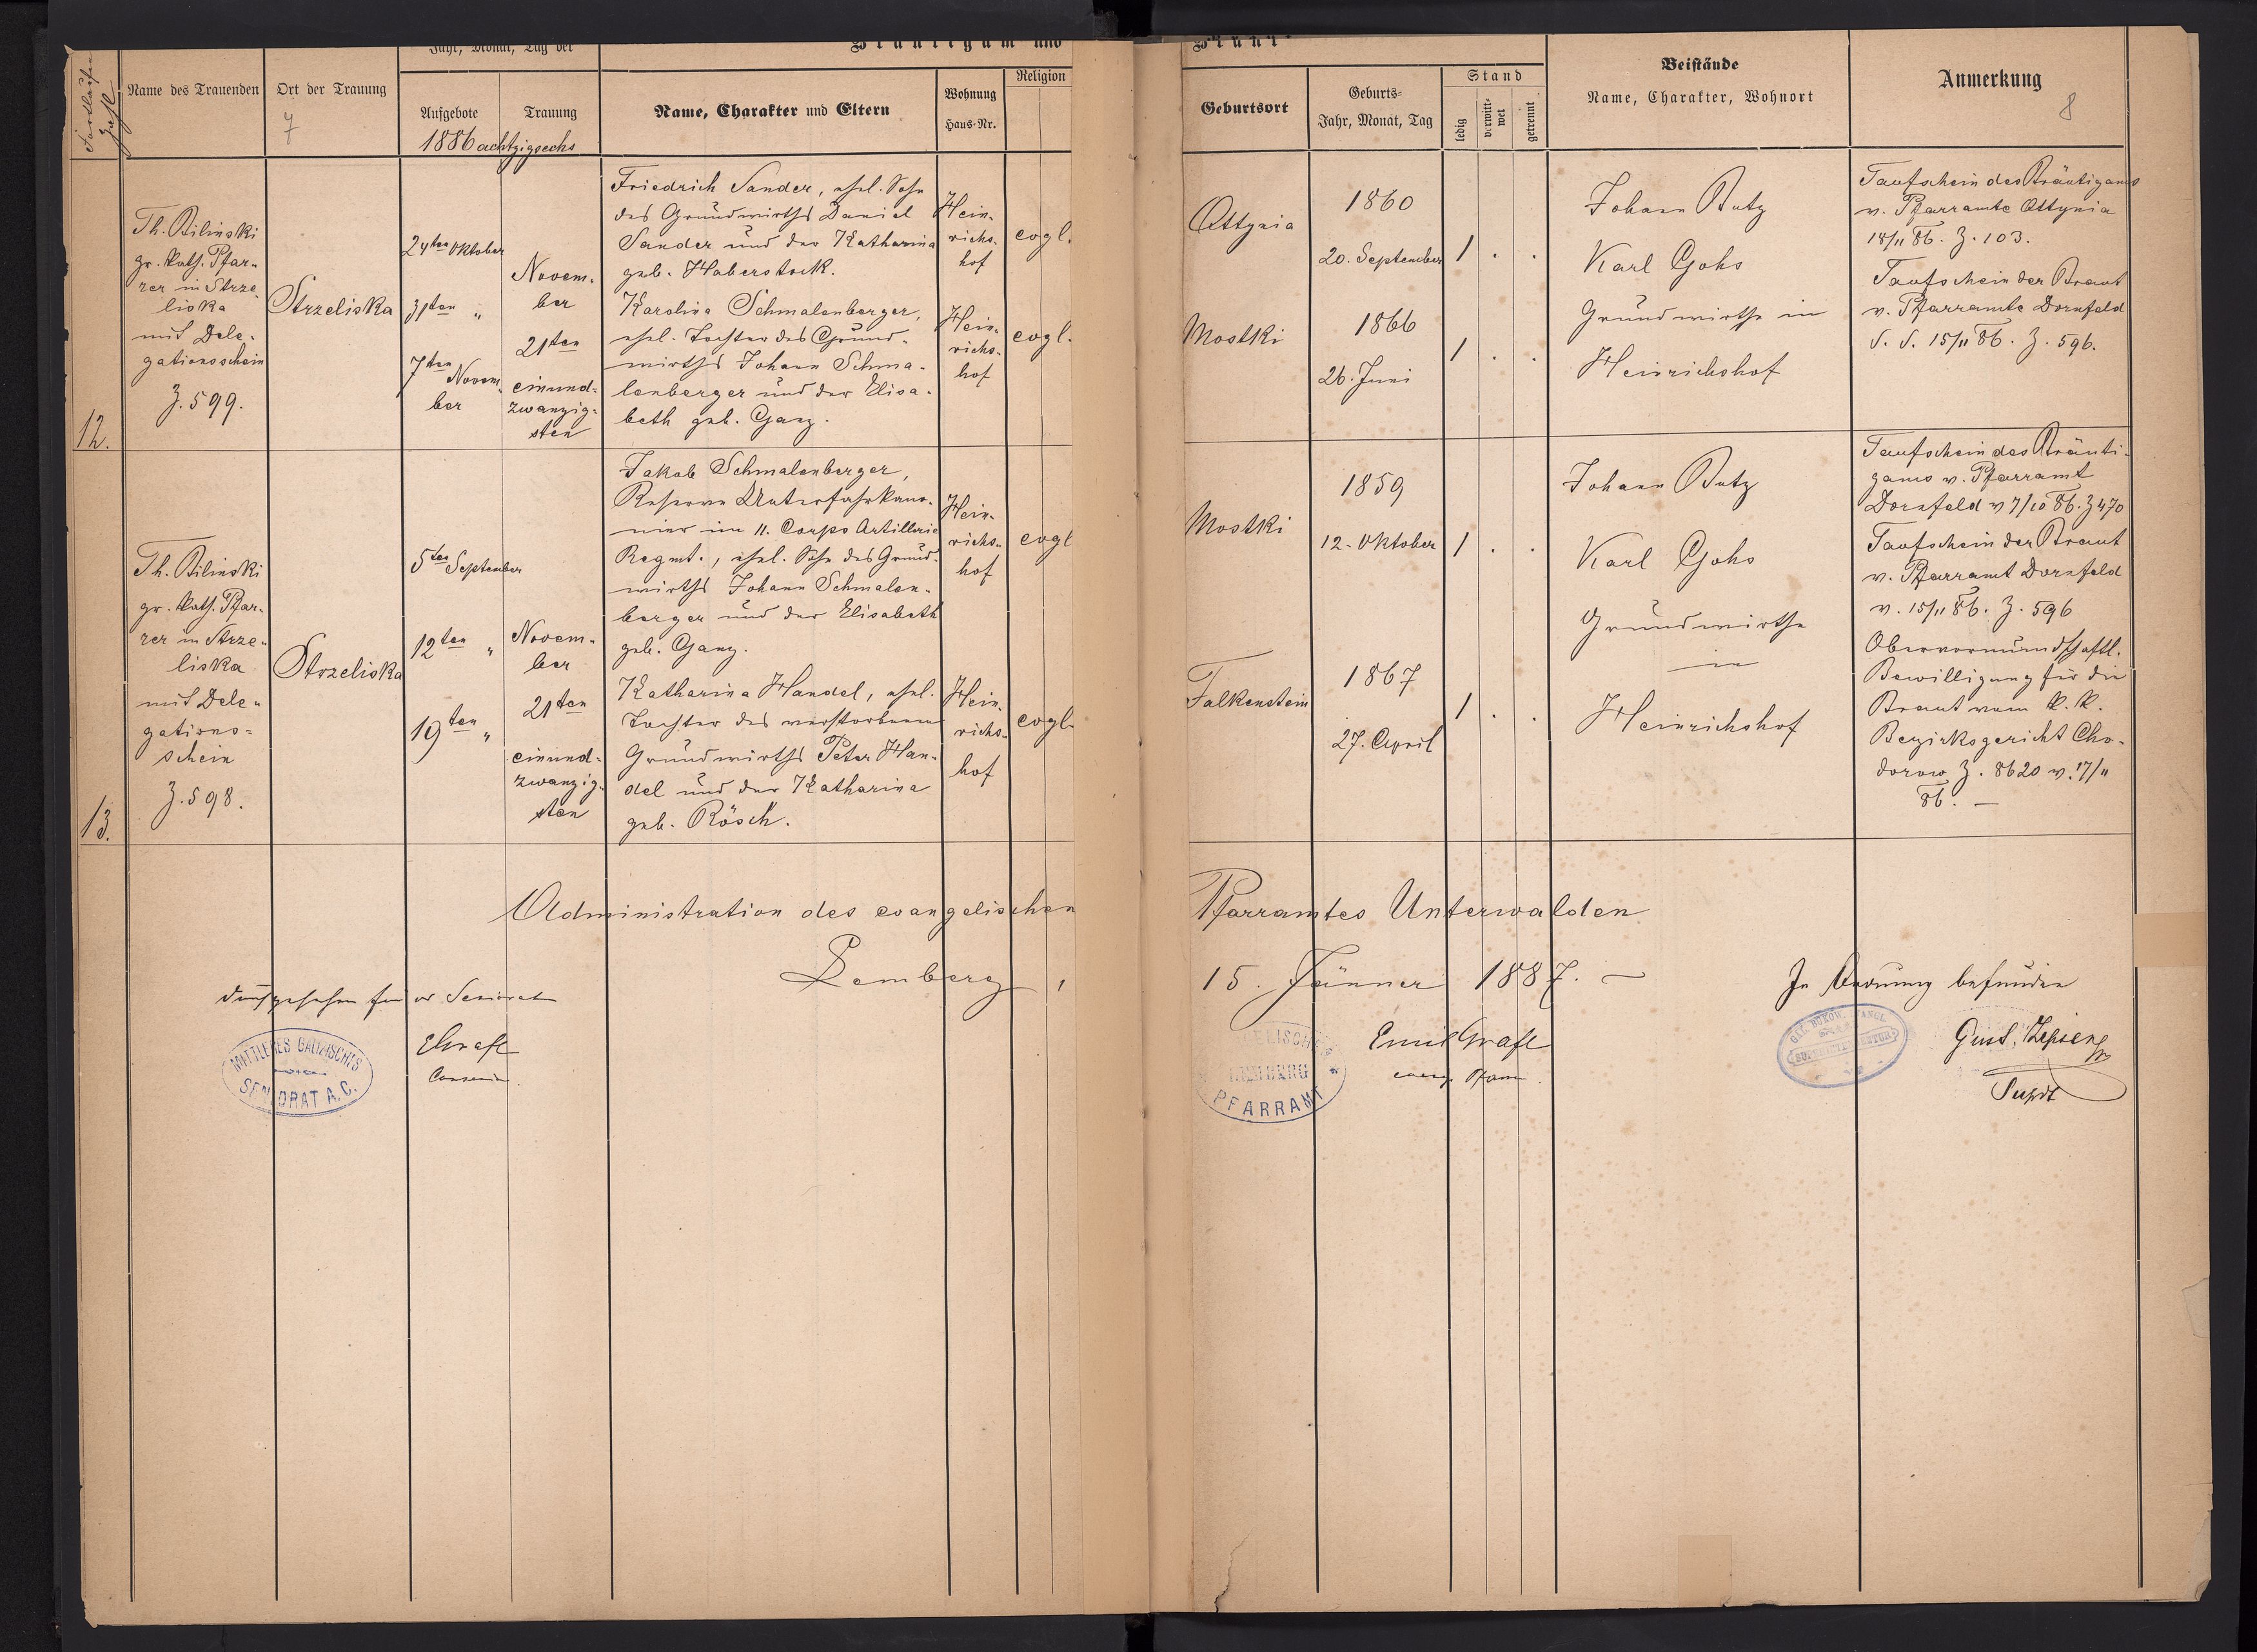 Fortlaufende Zahl
Name des Trauenden
Ort der Trauung
7
Jahr, Monat, Tag der
Aufgebote
Trauung
1886 achtzigsechs
Bräutigam und
Name, Charakter und Eltern
Wohnung
Haus-Nr.
Religion
Braut
Geburtsort
Geburts-
Jahr, Monat, Tag
Stand
ledig
verwitt-
wet
getrennt
Beistände
Name, Charakter, Wohnort
Anmerkung
8
12.
Th. Bilinski
gr. kath. Pfar-
rer in Strze-
liska
mit Dele-
gationsschein
Z. 599.
Strzeliska
24ten Oktober
31ten "
7ten Novem-
ber
Novem-
ber
21ten
einund-
zwanzig-
sten
Friedrich Sander, ehel. Sohn
des Grundwirths Daniel
Sander und der Katharina
geb. Haberstock.
Karolina Schmalenberger,
ehel. Tochter des Grund-
wirths Johann Schma-
lenberger und der Elisa-
beth geb. Ganz.
Hein-
richs-
hof
Hein-
richs-
hof
evgl.
evgl.
Ottynia
Mostki
1860
20. September
1866
26. Juni
1 . .
1 . .
Johann Butz
Karl Gohs
Grundwirthe in
Heinrichshof
Taufschein des Bräutigams
v. Pfarramte Ottynia
18/11 86. Z. 103.
Taufschein der Braut
v. Pfarramte Dornfeld
d. d. 15/11 86. Z. 596.
13.
Th. Bilinski
gr. kath. Pfar-
rer in Strze-
liska
mit Dele-
gations-
schein
Z. 598.
Strzeliska
5ten September
12ten "
19ten "
Novem-
ber
21ten
einund-
zwanzig-
sten
Jakob Schmalenberger,
Reserve Unterfahrkano-
nier im 11. Corps Artillerie
Regmt., ehel. Sohn des Grund-
wirths Johann Schmalen-
berger und der Elisabeth
geb. Ganz.
Katharina Handel, ehel.
Tochter des verstorbenen
Grundwirths Peter Han-
del und der Katharina
geb. Rösch.
Hein-
richs-
hof
Hein-
richs-
hof
evgl
evgl.
Mostki
Falkenstein
1859
12. Oktober
1867
27. April
1 . .
1 . .
Johann Butz
Karl Gohs
Grundwirthe
in
Heinrichshof
Taufschein des Bräuti-
gams v. Pfarramt
Dornfeld v 7/10 86. Z 470
Taufschein der Braut
v. Pfarramt Dornfeld
v. 15/11 86. Z. 596
Obervormundschaftl.
Bewilligung für die
Braut vom k. k.
Bezirksgericht Cho-
dorow Z. 8620 v. 17/11
86. —
Administration des evangelischen Pfarramtes Unterwalden
Lemberg, 15. Jänner 1887. —
MITTLERES GALIZISCHES
SENIORAT A.C.
Emil Grafl
evang. Pfarrer.
LEMBERG
PFARRAMT
In Ordnung befunden
Gust.
Supdt